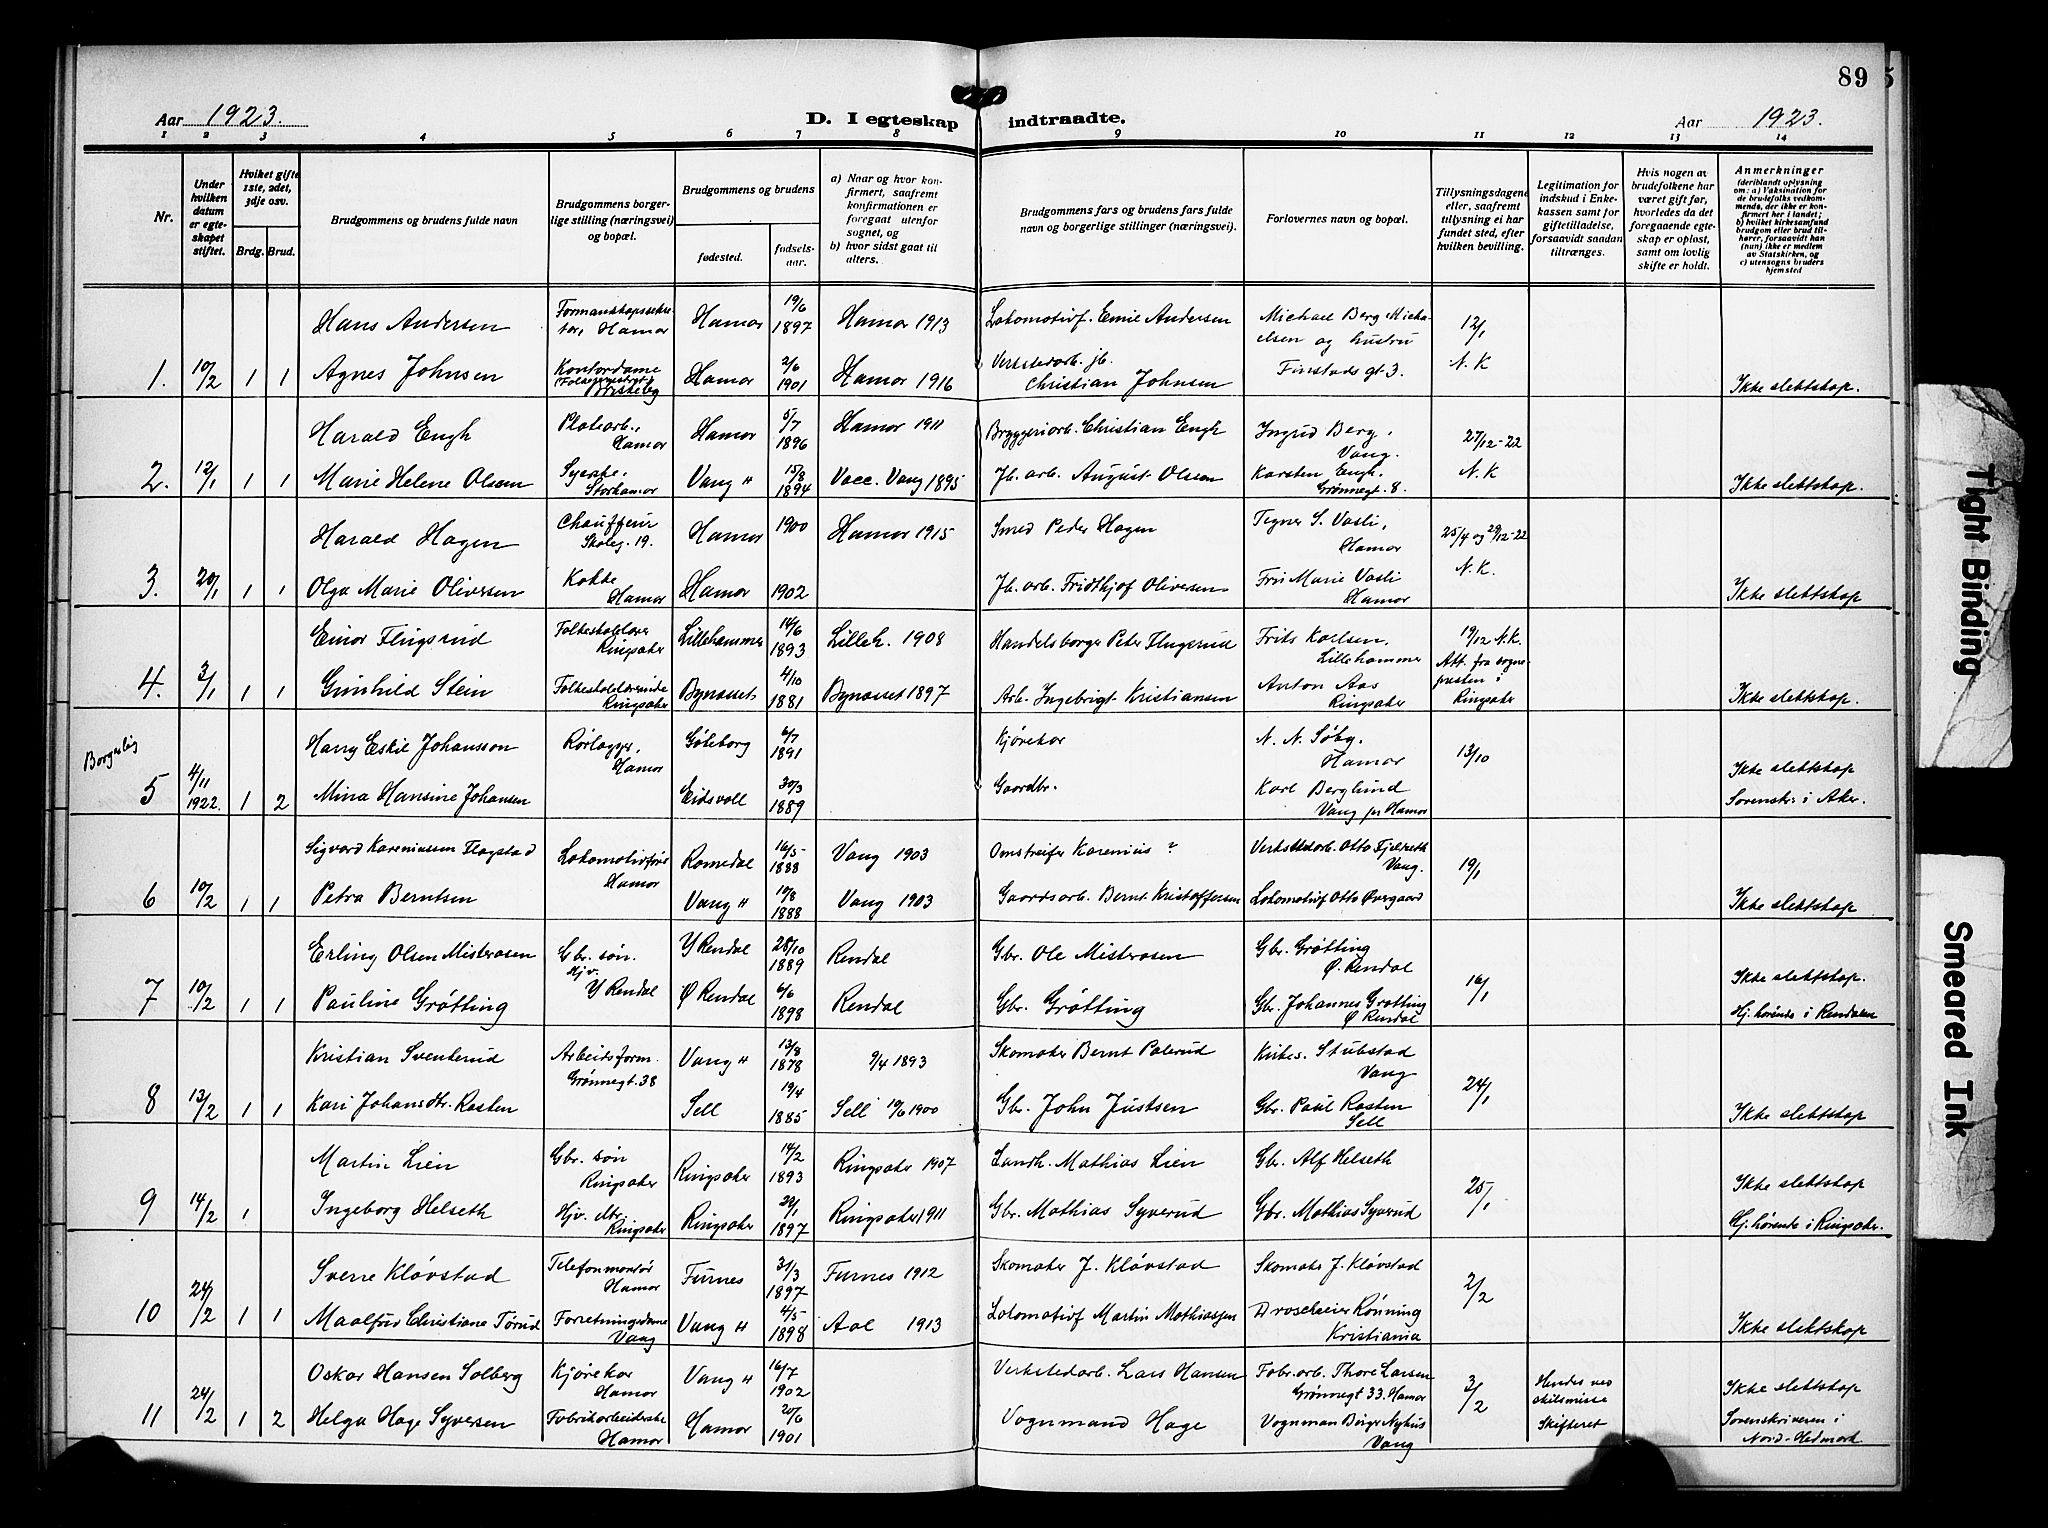 89
Aar 1923.
D. I egteskap indtraadte.
Aar 1923.
1 2 3 4 5 6 7 8 9 10 11 12 13 14
Nr.
Under hvilken datum er egteskapet stiftet.
Hvilket gifte 1ste, 2det, 3dje osv.
Brdg. Brud.
Brudgommens og brudens fulde navn
Brudgommens borgerlige stilling (næringsvei) og bopæl.
Brudgommens og brudens
fødested.
fødselsaar.
a) Naar og hvor konfirmert, saafremt konfirmationen er foregaat utenfor sognet, og
b) hvor sidst gaat til alters.
Brudgommens fars og brudens fars fulde navn og borgerlige stillinger (næringsvei).
Forlovernes navn og bopæl.
Tillysningsdagene eller, saafremt tillysning ei har fundet sted, efter hvilken bevilling.
Legitimation for indskud i Enkekassen samt for giftetilladelse, forsaavidt saadan tiltrænges.
Hvis nogen av brudefolkene har været gift før, hvorledes da det foregaaende egteskap er opløst, samt om lovlig skifte er holdt.
Anmerkninger
(deriblandt oplysning om: a) Vaksination for de brudefolks vedkommende, der ikke er konfirmert her i landet; b) hvilket kirkesamfund brudgom eller brud tilhører, forsaavidt han (hun) ikke er medlem av Statskirken, og c) utensogns bruders hjemsted
Hans Andersen Formandskapssekretær, Hamar Hamar 19/6 1897 Hamar 1913 Lokomotivf. Emil Andersen Michael Berg Michaelsen og hustru 12/1
1. 10/2 1 1 Agnes Johnsen Kontordame Hamar 2/6 1901 Hamar 1916 Verkstedarb. jb. Christian Johnsen Finstads gt 3. N.K Ikke slektskap.
Harald Engh Platearb., Hamar Hamar 5/7 1896 Hamar 1911 Bryggeriarb. Christian Engh Ingrid Berg, Vang. 27/12-22
2. 12/1 1 1 Marie Helene Olsen Syerske, Storhamar Vang H 15/8 1894 Vacc. Vang 1895 Jb. arb. August Olsen Karsten Engh. Grønnegt. 8. N.K Ikke slektskap.
Harald Hagen Chauffeur Skoleg. 19. Hamar 1900 Hamar 1915 Smed Peder Hagen Tegner S. Vasli, Hamar 25/4 og 29/12-22
3. 20/1 1 1 Olga Marie Oliversen Kokke Hamar Hamar 1902 Jb. arb. Fridthjof Oliversen Fru Marie Vasli Hamar N.K. Ikke slektskap
Einar Flugsrud Folkeskolelærer Ringsaker Lillehammer 14/6 1893 Lilleh. 1908 Handelsborger Peter Flugsrud Frits Karlsen, Lillehammer 19/12 N.K.
4. 3/1 1 1 Gunhild Stein Folkeskolelærerinde Ringsaker Bynesset 4/10 1881 Bynesset 1897 Arb. Ingebrigt Kristiansen Anton Aas Ringsaker Att. fra sognepresten i Ringsaker Ikke slektskap.
Borgerlig
Harry Eskil Johansson Rørlægger, Hamar Gøteborg 6/7 1891 Kjørekar N. N. Søby. Hamar 13/10 Ikke slektskap
5 4/11 1922. 1 2 Mina Hansine Johansen Eidsvoll 30/3 1889 Gaardbr. Karl Berglund Vang pr Hamar Sorenskr. i Aker.
Sigvard Kareniussen Flagstad Lokomotivfører Hamar Romedal 16/5 1888 Vang 1903 Omstreifer Karenius ? Verkstedarb. Otto Fjelseth Vang. 19/1
6 10/2 1 1 Petra Berntsen Vang H 10/8 1888 Vang 1903 Gaardsarb. Bernt Kristoffersen Lokomotivf Otto Øvergaard Ikke slektskap
Erling Olsen Misterosen Gbr. søn. Y Rendal 28/10 1889 Rendal Gbr. Ole Misterosen Gbr. Grøtting Ø. Rendal 16/1 Ikke slektskap.
7 10/2 1 1 Pauline Grøtting Hjv. Y Rendal Ø Rendal 6/6 1898 Rendal Gbr. Grøtting Gbr. Johannes Grøtting Ø Rendal Hj. hørende i Rendalen
Kristian Svenkerud Arbeidsform. Grønnegt. 38 Vang H 13/8 1878 9/4 1893 Skomaker Bernt Palerud Kirkes. Stubstad Vang 24/1
8 13/2 1 1 Kari Johansdtr. Rasten Sell 19/4 1885 Sell 10/6 1900 Gbr. John Justsen Gbr. Paul Rasten Sell Ikke slektskap
Martin Lien Gbr. søn Ringsaker Ringsaker 14/2 1893 Ringsaker 1907 Landh. Mathias Lien Gbr. Alf Helseth 25/1 Ikke slektskap
9 14/2 1 Ingeborg Helseth Hjv. dtr. Ringsaker Ringsaker 29/1 1897 Ringsaker 1911 Gbr. Mathias Syverud Gbr. Mathias Syverud Hj. hørende i Ringsaker.
Sverre Kløvstad Telefonmontør Hamar Furnes 31/3 1897 Furnes 1912 Skomaker J. Kløvstad Skomaker J. Kløvstad 2/2
10 24/2 1 1 Maalfrid Christiane Tørud Forretningsdame Vang Vang H 4/5 1898 Aal 1913 Lokomotivf Martin Mathiassen Droscheeier Rønning Kristiania Ikke slektskap
Oskar Hansen Solberg Kjørekar Hamar Vang H 16/7 1902 Verkstedarb. Lars Hansen Fabr. arb. Thore Larsen Grønnegt 33. Hamar 3/2 Hendes ved skilsmisse Ikke slektskap
11 24/2 1 2 Helga Hage Syversen Fabrikarbeiderske Hamar Hamar 20/6 1901 Vognmand Hage Vognman Birger Nyhus Vang Skifteret Sorenskriveren i Nord-Hedmark
Tight Binding
Smeared Ink